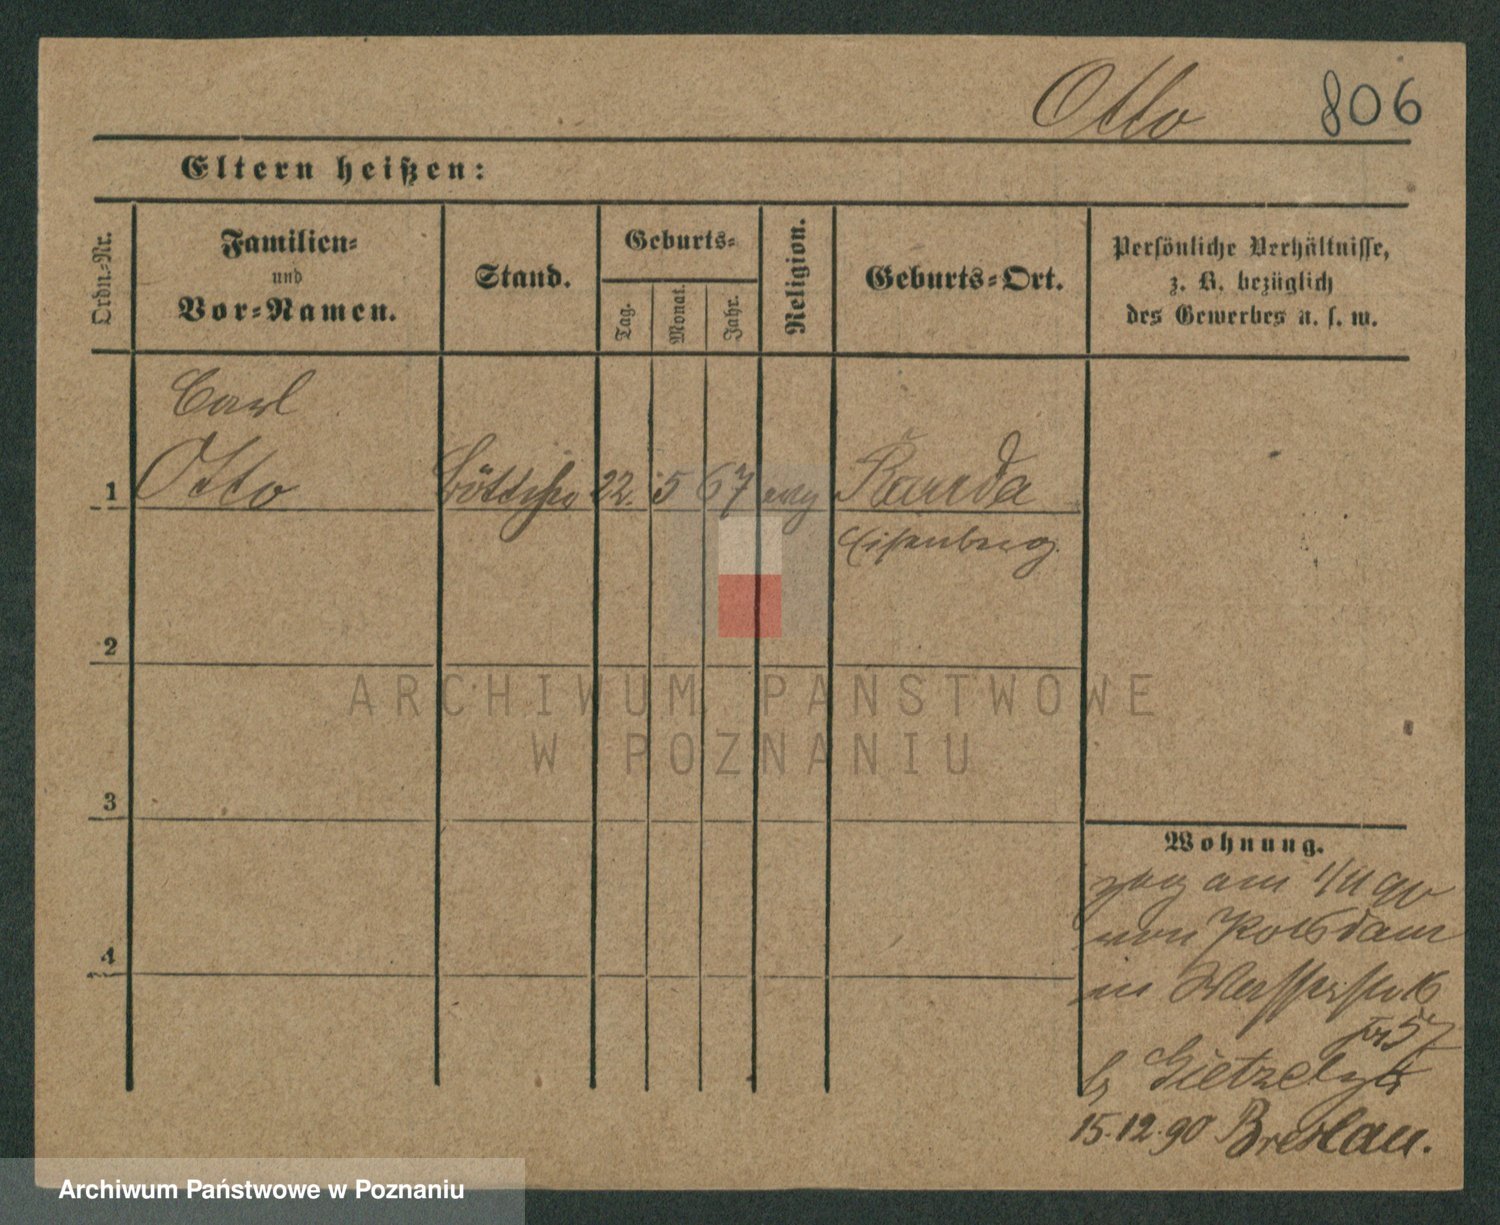 Otto 806
Eltern heißen:
Ordn.-Nr.
Familien-
und
Vor-Namen.
Stand.
Geburts-
Tag.
Monat.
Jahr.
Religion.
Geburts-Ort.
Persönliche Verhältnisse,
z. B. bezüglich
des Gewerbes u. s. w.
Carl
1 Otto Böttcher 22. 5 67 evg Rauda
Eisenberg.
2
3
4
Wohnung.
zog am 1/11 90
von Potsdam
in Wasserstr 16
57
b
15.12.90 Breslau.
ARCHIWUM PAŃSTWOWE
W POZNANIU
Archiwum Państwowe w Poznaniu